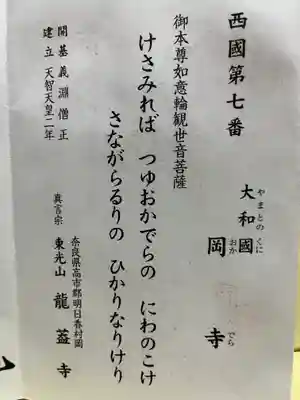 西國第七番
大和國 岡寺
やまとの くに おか でら
御本尊如意輪観世音菩薩
けさみれば つゆおかでらの にわのこけ
さながらるりの ひかりなりけり
開基 義淵僧正
建立 天智天皇二年
奈良県高市郡明日香村岡
真言宗 東光山 龍蓋寺